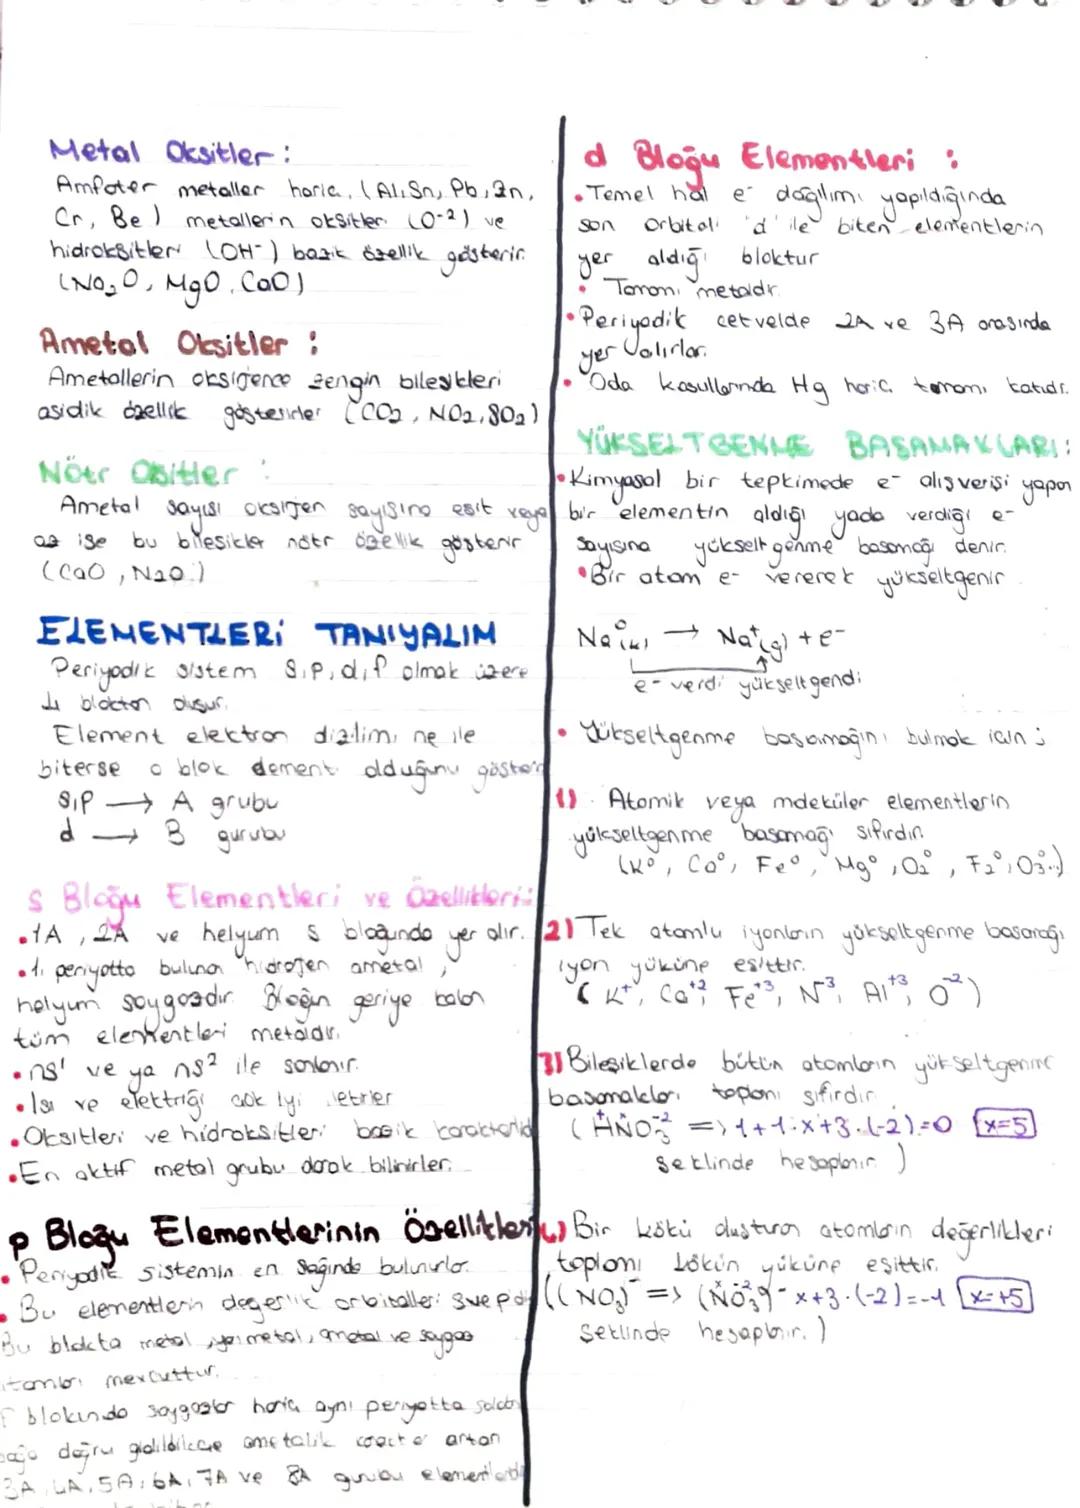 Metal Oksitler :
Amfoter metaller hariç, (Al, Sn, Pb, Zn,
Cr, Be) metallerin oksitleri (O⁻²) ve
hidroksitleri (OH⁻) bazik özellik gösterir.
(Na₂O, MgO, CaO)
Ametal Oksitler :
Ametallerin oksijence zengin bileşikleri
asidik özellik gösterirler (CO₂, NO₂, SO₂)
Nötr Oksitler :
Ametal sayısı oksijen sayısına eşit veya
az ise bu bileşikler nötr özellik gösterir
(CaO, N₂O)
ELEMENTLERİ TANIYALIM
Periyodik sistem s, p, d, f olmak üzere
4 bloktan oluşur.
Element elektron dizilimi ne ile
biterse o blok elementi olduğunu gösterir
s,p → A grubu
d → B gurubu
s Bloğu Elementleri ve Özellikleri:
• 1A, 2A ve helyum s bloğunda yer alır.
• 1. periyotta bulunan hidrojen ametal,
helyum soygazdır. Bloğun geriye kalan
tüm elementleri metaldir.
• ns¹ ve ya ns² ile sonlanır.
• Isı ve elektriği çok iyi iletirler
• Oksitleri ve hidroksitleri bazik karakterlid
• En aktif metal grubu olarak bilinirler.
p Bloğu Elementlerinin Özellikleri
• Periyodik sistemin en sağında bulunurlar.
• Bu elementlerin değerlik orbitalleri s ve p dir
Bu blokta metal, yarı metal, ametal ve soygaz
atomları mevcuttur.
P blokunda soygazlar hariç aynı periyotta soldan
sağa doğru gidildikçe ametalik karakter artan
3A, 4A, 5A, 6A, 7A ve 8A gurubu elementlerdi
d Bloğu Elementleri :
• Temel hal e⁻ dağılımı yapıldığında
son orbitali 'd' ile biten elementlerin
yer aldığı bloktur
• Tamamı metaldir.
• Periyodik cetvelde 2A ve 3A arasında
yer alırlar.
• Oda koşullarında Hg hariç tamamı katıdır.
YÜKSELTGENME BASAMAKLARI:
• Kimyasal bir tepkimede e⁻ alışverişi yapan
bir elementin aldığı yada verdiği e⁻
sayısına yükseltgenme basamağı denir.
• Bir atom e⁻ vererek yükseltgenir
Na⁰(k) → Na⁺(g) + e⁻
e⁻ verdi yükseltgendi
• Yükseltgenme basamağını bulmak için ;
1) Atomik veya moleküler elementlerin
yükseltgenme basamağı sıfırdır.
(K⁰, Ca⁰, Fe⁰, Mg⁰, O₂⁰, F₂⁰, O₃⁰..)
2) Tek atomlu iyonların yükseltgenme basamağı
iyon yüküne eşittir.
(K⁺, Ca⁺², Fe⁺³, N⁻³, Al⁺³, O⁻²)
3) Bileşiklerde bütün atomların yükseltgenme
basamakları toplamı sıfırdır
(HNO₃ => 1+1.x+3.(-2)=0 x=5
şeklinde hesaplanır.)
4) Bir kökü oluşturan atomların değerlikleri
toplamı kökün yüküne eşittir.
((NO₃)⁻ => (NO₃)⁻ x+3.(-2)=-1 x=+5
şeklinde hesaplanır.)